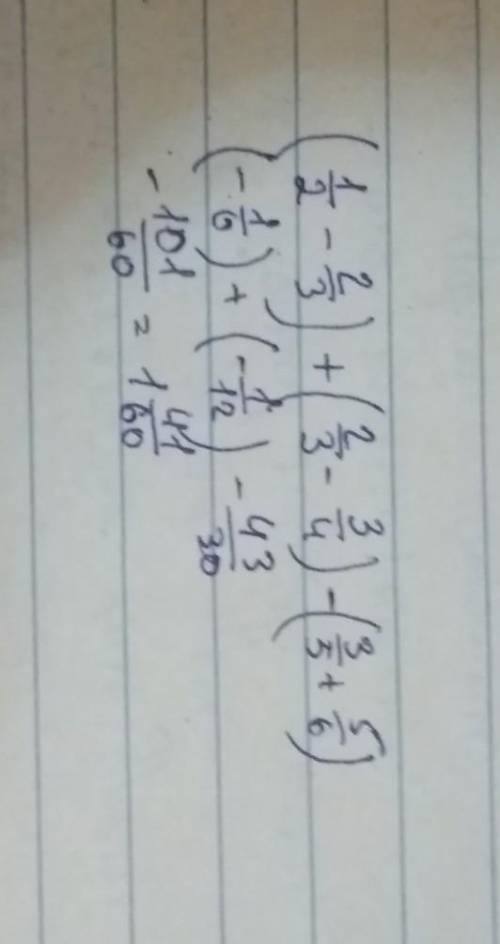 (1/2 - 2/3) + (2/3 - 3/4) - (3/5 + 5/6)
(-1/6) + (-1/12) - 43/30
-101/60 = 1 41/60